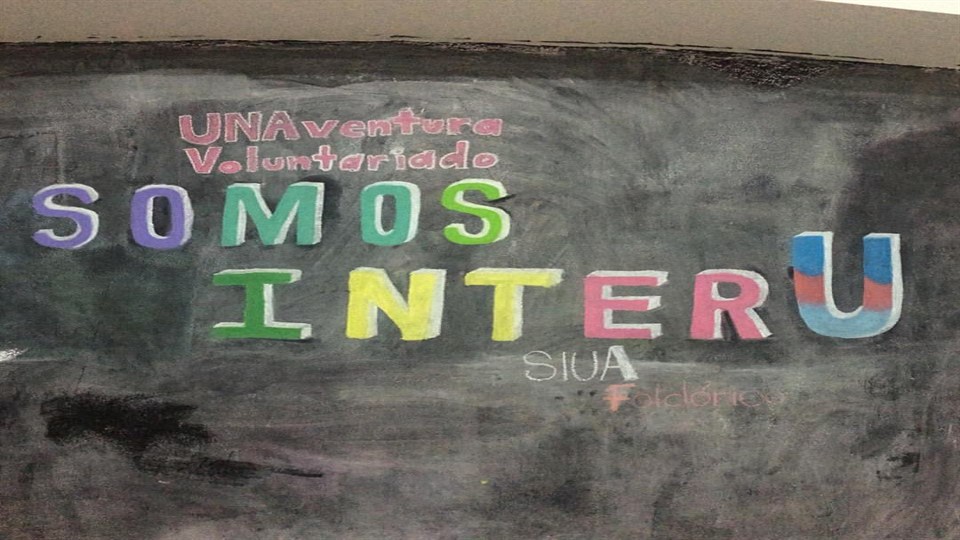 UNAventura
Voluntariado
SOMOS
INTERU
SIUA
Folclórico